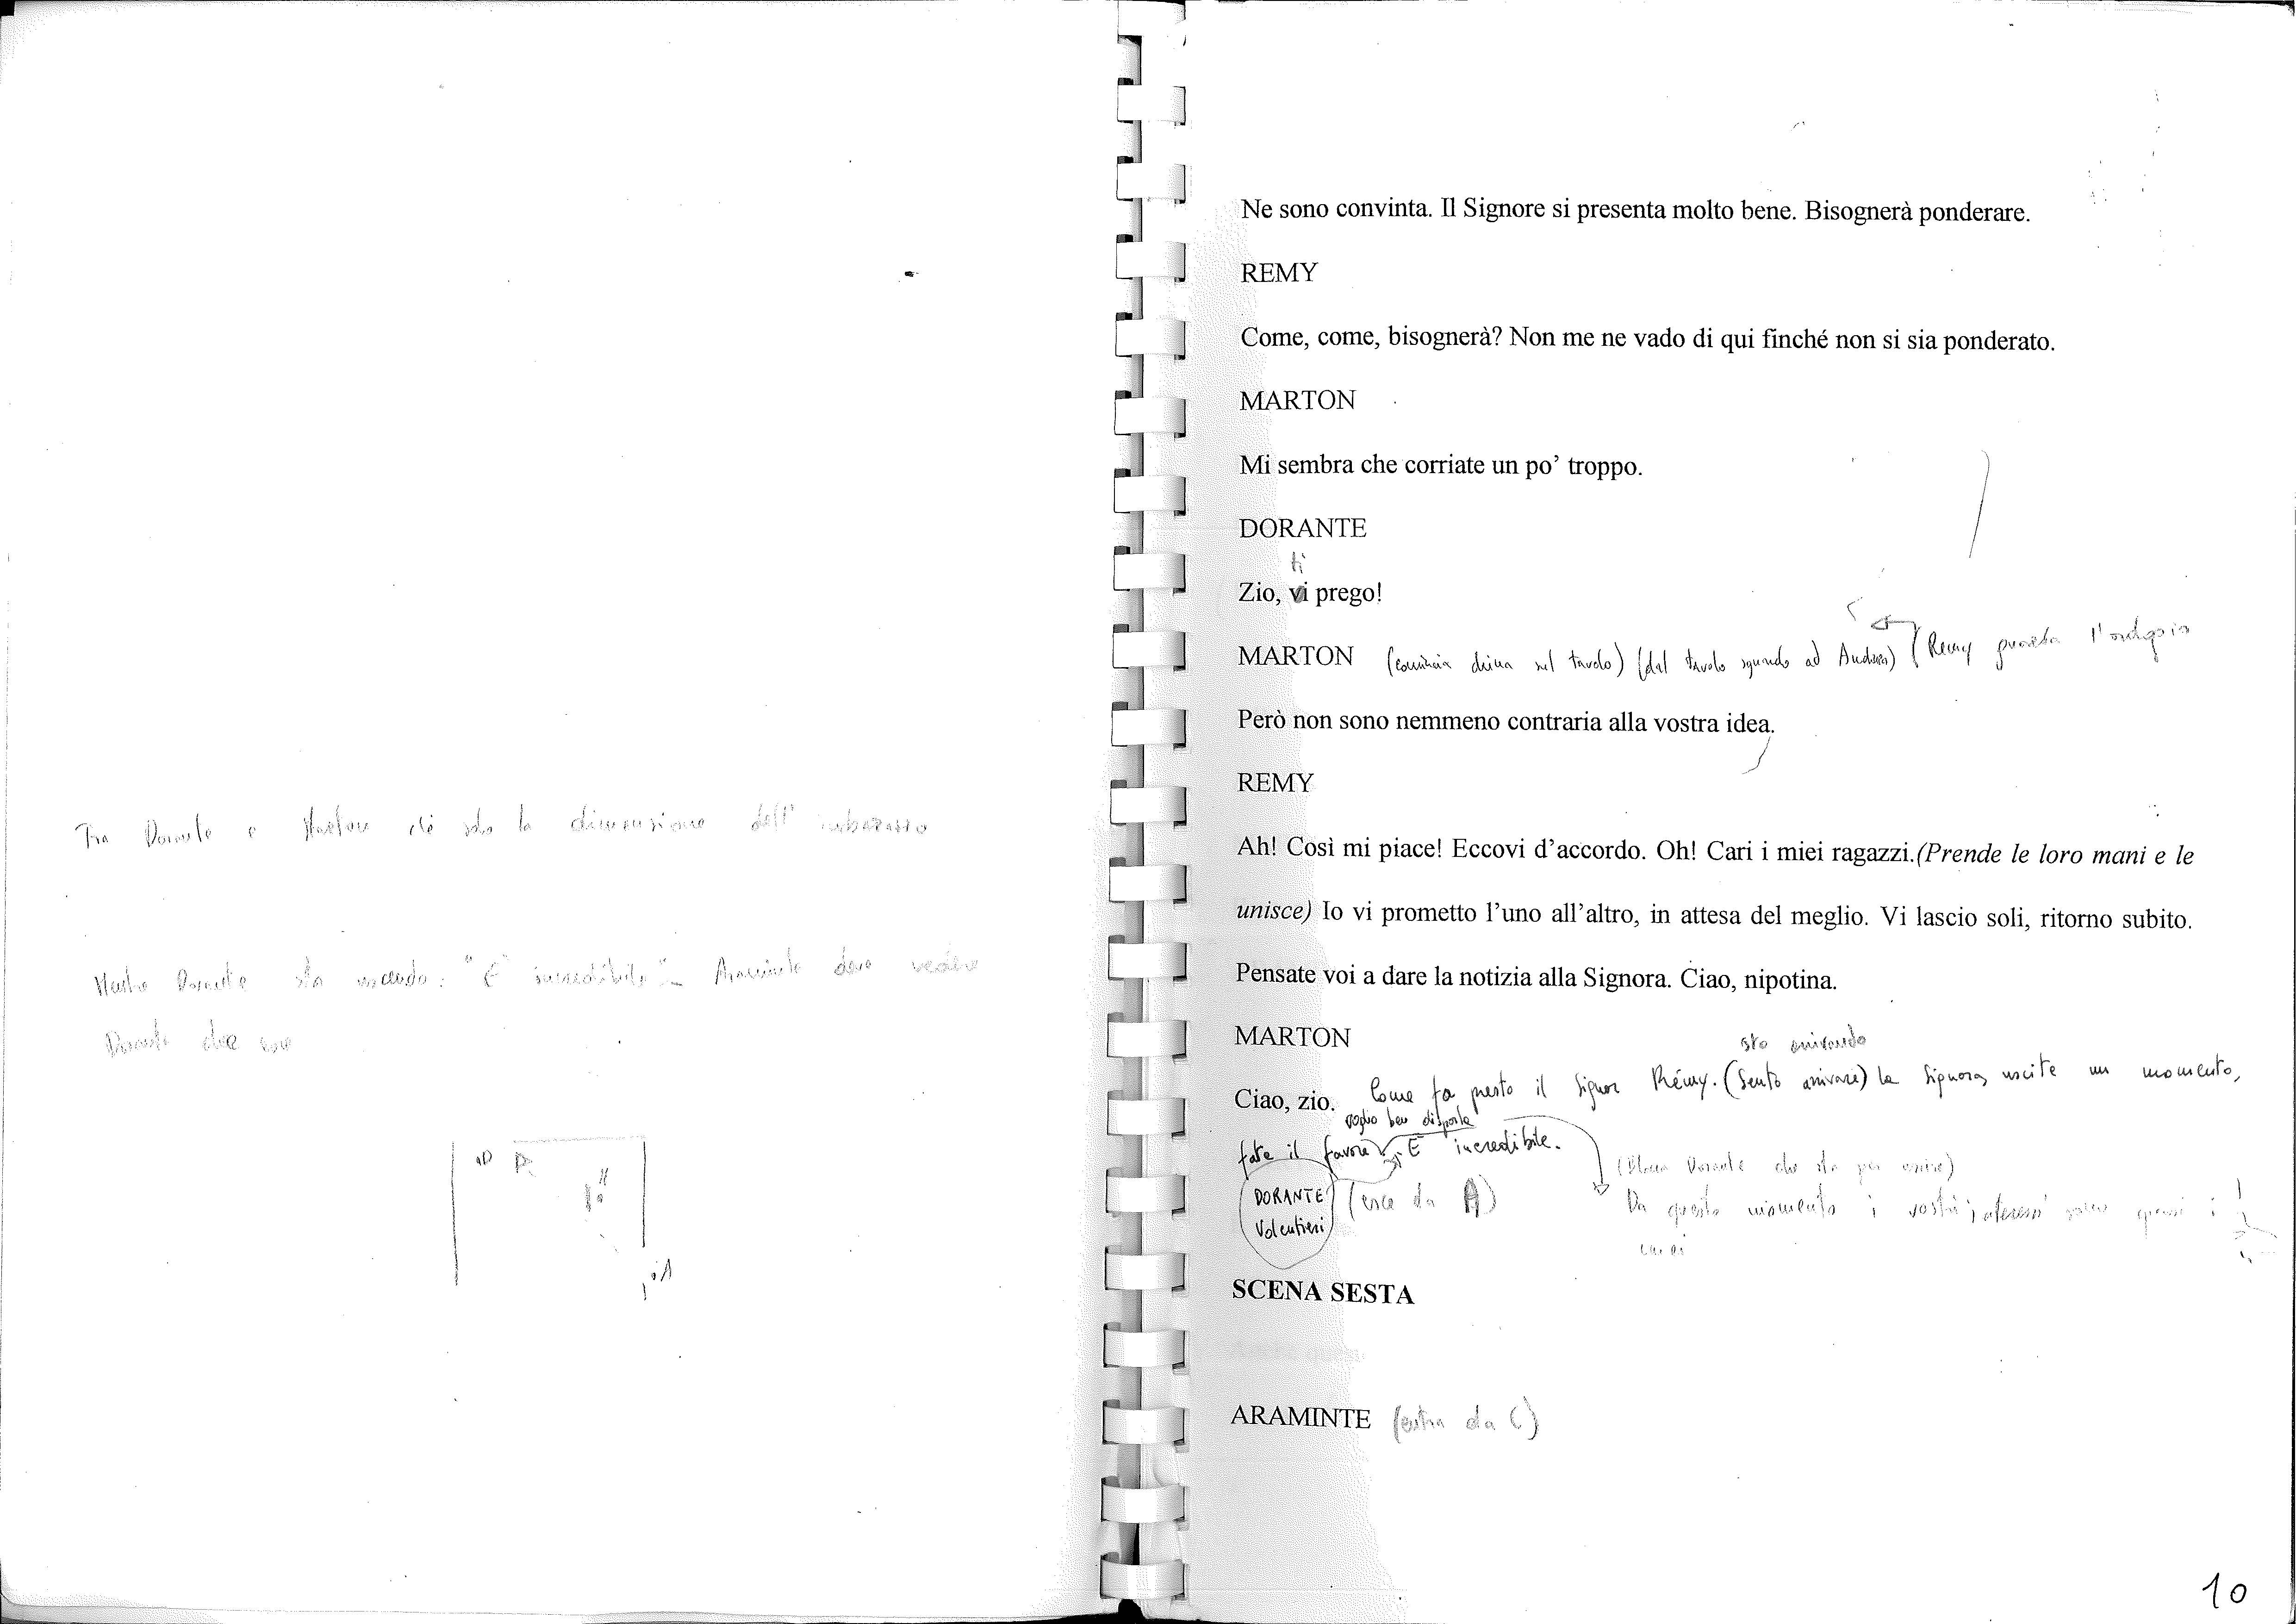 Tra Dorante e Marton c'è solo la dimensione dell'imbarazzo
Mentre Dorante sta uscendo: "È incredibile" - Araminte deve vedere
Dorante che esce
Ne sono convinta. Il Signore si presenta molto bene. Bisognerà ponderare.
REMY
Come, come, bisognerà? Non me ne vado di qui finché non si sia ponderato.
MARTON
Mi sembra che corriate un po' troppo.
DORANTE
ti
Zio, vi prego!
MARTON (comincia seduta sul tavolo) (dal tavolo sguardo ad Andrea) (Remy guarda l'orologio
Però non sono nemmeno contraria alla vostra idea.
REMY
Ah! Così mi piace! Eccovi d'accordo. Oh! Cari i miei ragazzi.(Prende le loro mani e le
unisce) Io vi prometto l'uno all'altro, in attesa del meglio. Vi lascio soli, ritorno subito.
Pensate voi a dare la notizia alla Signora. Ciao, nipotina.
MARTON
sta arrivando
Ciao, zio. Come fa presto il Signor Rémy. (Sento arrivare) la Signora, uscite un momento,
voglio ben disporla
fate il favore. È incredibile.
Dorante che sta per uscire)
DORANTE (esce da A)
Da questo momento i vostri interessi sono quasi i
Volentieri
SCENA SESTA
ARAMINTE (entra da C)
10